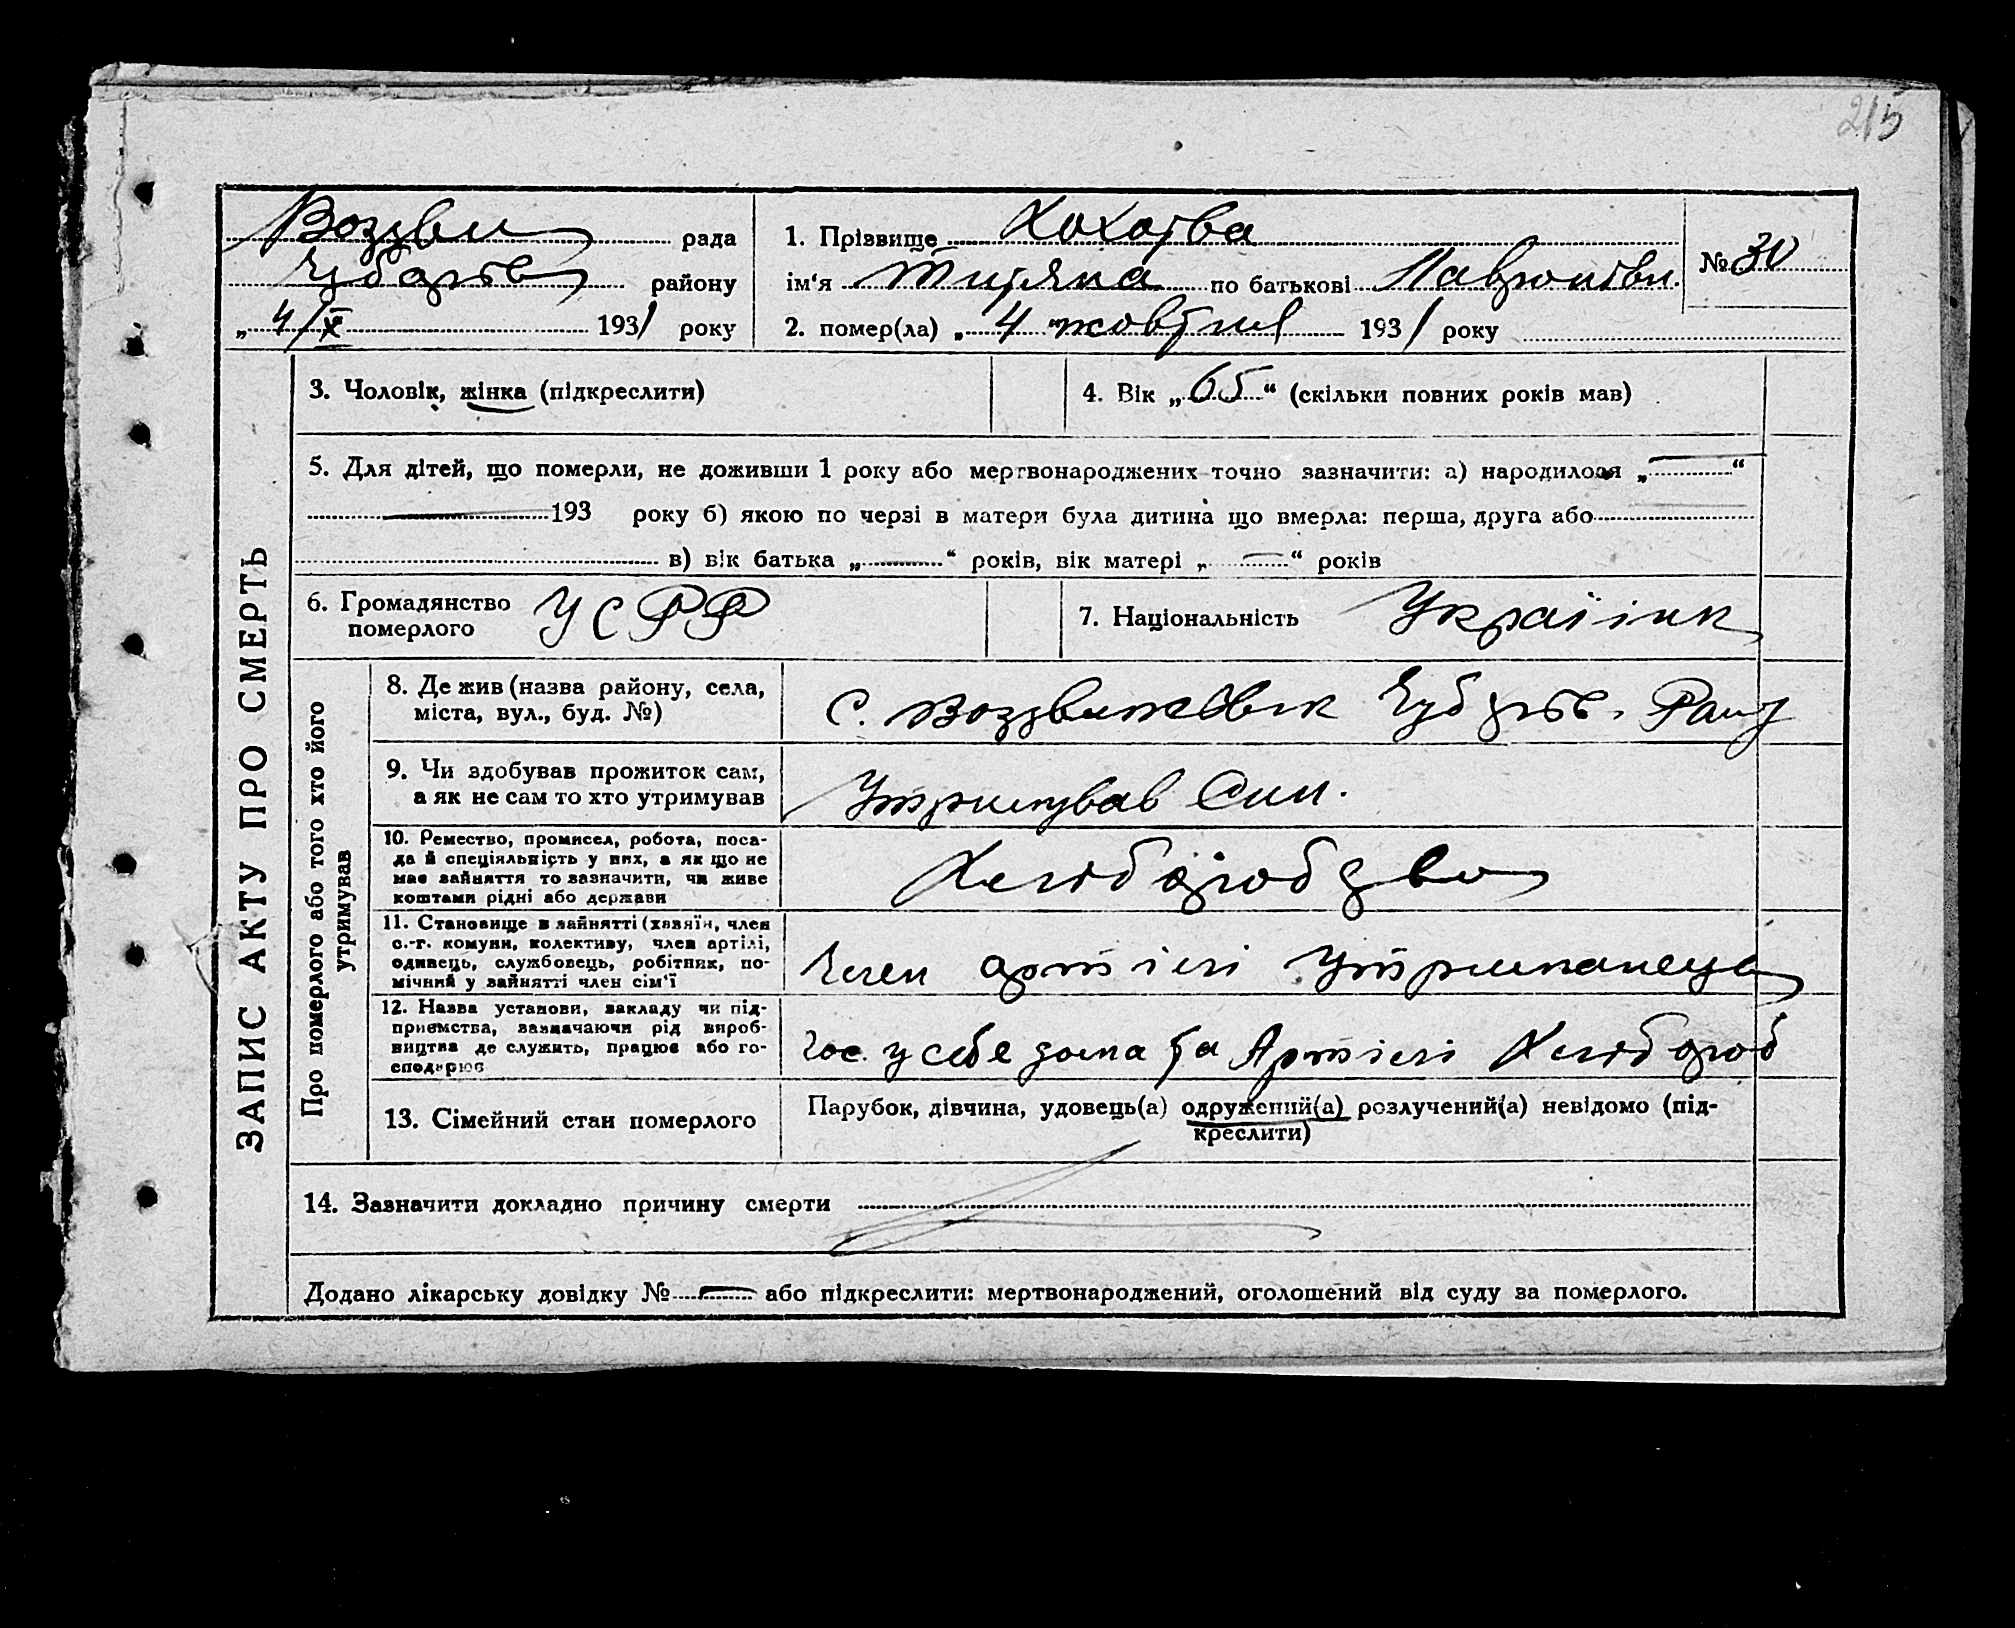 215
Воздви рада
Чубарівс району
„ 4/X 1931 року
1. Прізвище Хохотва
ім'я по батькові
2. помер(ла) „ 4 " жовтня 1931 року
№ 30
ЗАПИС АКТУ ПРО СМЕРТЬ
3. Чоловік, жінка (підкреслити)
4. Вік „ 65 “ (скільки повних років мав)
5. Для дітей, що померли, не доживши 1 року або мертвонароджених точно зазначити: а) народилося „ “
193 року б) якою по черзі в матери була дитина що вмерла: перша, друга або
в) вік батька „ “ років, вік матері „ “ років
6. Громадянство
померлого
УСРР
7. Національність Україінк
Про померлого або того хто його
утримував
8. Де жив (назва району, села,
міста, вул., буд. №)
с. Воздвижевк Чубарівс. Рану
9. Чи здобував прожиток сам,
а як не сам то хто утримував
Утримував Син.
10. Ремество, промисел, робота, поса-
да й спеціяльність у них, а як що не
має зайняття то зазначити, чи живе
коштами рідні або держави
Хліборобдво
11. Становище в зайнятті (хазяїн, член
с.-г. комуни, колективу, член артілі,
одивець, службовець, робітник, по-
мічний у зайнятті член сім'ї
Член артілі Утриманець
12. Назва установи, закладу чи під-
приємства, зазначаючи рід вироб-
ництва де служить, працює або го-
сподарює
Гос. у себе дома та Артілі Хлібороб
13. Сімейний стан померлого
Парубок, дівчина, удовець(а) одружений(а) розлучений(а) невідомо (під-
креслити)
14. Зазначити докладно причину смерти
Додано лікарську довідку № або підкреслити: мертвонароджений, оголошений від суду за померлого.